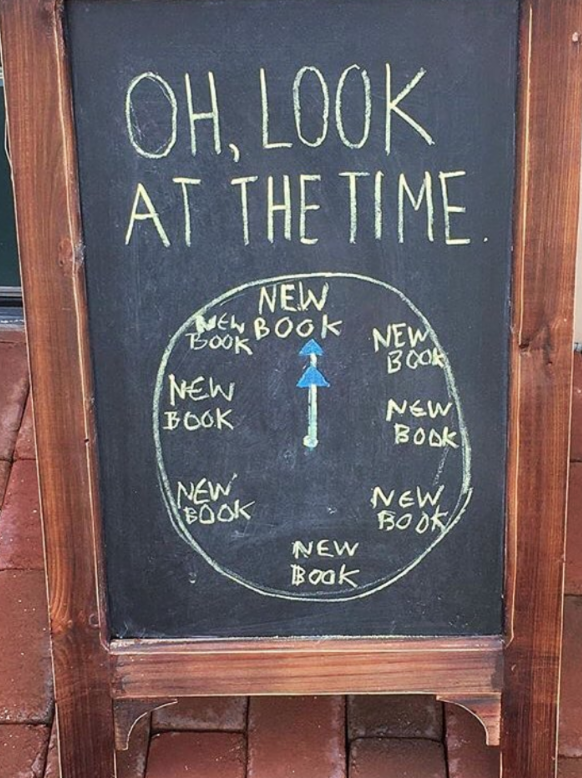 OH, LOOK
AT THE TIME.
NEW
BOOK
NEW
BOOK
NEW
BOOK
NEW
BOOK
NEW
BOOK
NEW
BOOK
NEW
BOOK
NEW
BOOK